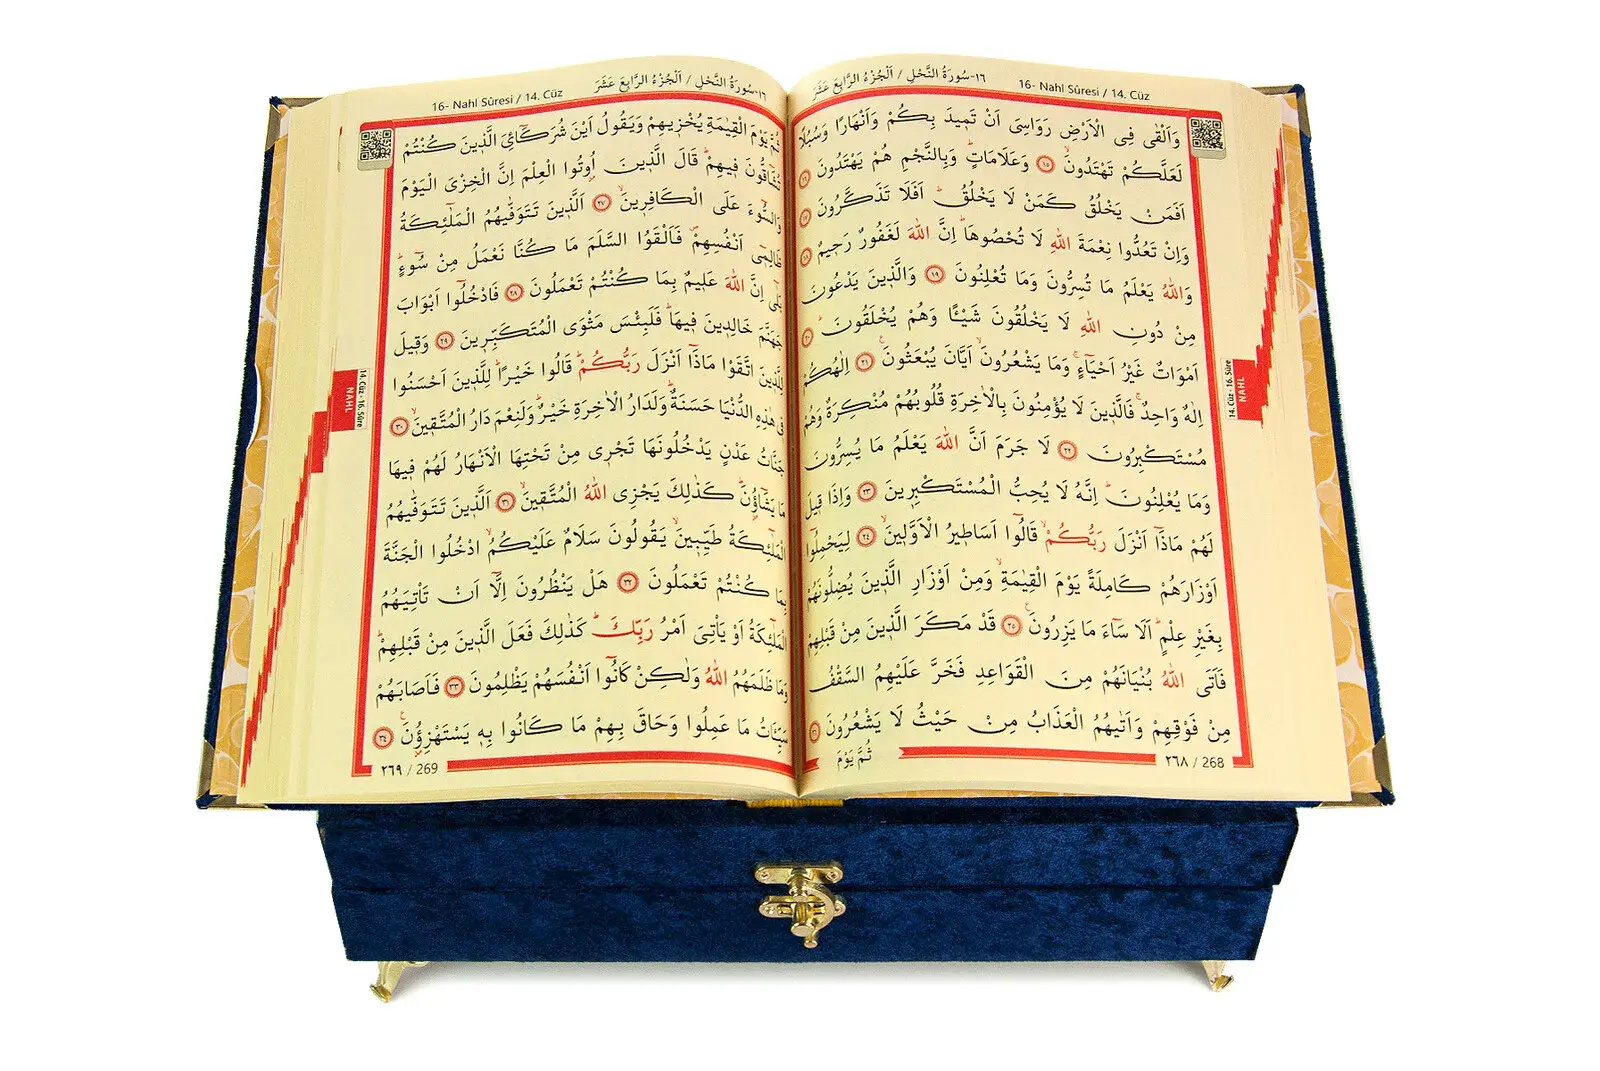 ١٦-سُورَةُ النَّحْلِ / اَلْجُزْءُ الرَّابِعَ عَشَرَ
16- Nahl Sûresi / 14. Cüz
وَاَلْقٰى فِي الْاَرْضِ رَوَاسِيَ اَنْ تَم۪يدَ بِكُمْ وَاَنْهَارًا وَسُبُلًا
لَعَلَّكُمْ تَهْتَدُونَۙ ﴿١٥﴾ وَعَلَامَاتٍۜ وَبِالنَّجْمِ هُمْ يَهْتَدُونَ ﴿١٦﴾
اَفَمَنْ يَخْلُقُ كَمَنْ لَا يَخْلُقُۜ اَفَلَا تَذَكَّرُونَ ﴿١٧﴾
وَاِنْ تَعُدُّوا نِعْمَةَ اللّٰهِ لَا تُحْصُوهَاۜ اِنَّ اللّٰهَ لَغَفُورٌ رَح۪يمٌ ﴿١٨﴾
وَاللّٰهُ يَعْلَمُ مَا تُسِرُّونَ وَمَا تُعْلِنُونَ ﴿١٩﴾ وَالَّذ۪ينَ يَدْعُونَ
مِنْ دُونِ اللّٰهِ لَا يَخْلُقُونَ شَيْـًٔا وَهُمْ يُخْلَقُونَۜ ﴿٢٠﴾
اَمْوَاتٌ غَيْرُ اَحْيَٓاءٍۚ وَمَا يَشْعُرُونَۙ اَيَّانَ يُبْعَثُونَ۟ ﴿٢١﴾ اِلٰهُكُمْ
اِلٰهٌ وَاحِدٌۚ فَالَّذ۪ينَ لَا يُؤْمِنُونَ بِالْاٰخِرَةِ قُلُوبُهُمْ مُنْكِرَةٌ وَهُمْ
مُسْتَكْبِرُونَ ﴿٢٢﴾ لَا جَرَمَ اَنَّ اللّٰهَ يَعْلَمُ مَا يُسِرُّونَ
وَمَا يُعْلِنُونَۜ اِنَّهُ لَا يُحِبُّ الْمُسْتَكْبِر۪ينَ ﴿٢٣﴾ وَاِذَا ق۪يلَ
لَهُمْ مَاذَٓا اَنْزَلَ رَبُّكُمْۙ قَالُٓوا اَسَاط۪يرُ الْاَوَّل۪ينَۙ ﴿٢٤﴾ لِيَحْمِلُٓوا
اَوْزَارَهُمْ كَامِلَةً يَوْمَ الْقِيٰمَةِۙ وَمِنْ اَوْزَارِ الَّذ۪ينَ يُضِلُّونَهُمْ
بِغَيْرِ عِلْمٍۜ اَلَا سَٓاءَ مَا يَزِرُونَ۟ ﴿٢٥﴾ قَدْ مَكَرَ الَّذ۪ينَ مِنْ قَبْلِهِمْ
فَاَتَى اللّٰهُ بُنْيَانَهُمْ مِنَ الْقَوَاعِدِ فَخَرَّ عَلَيْهِمُ السَّقْفُ
مِنْ فَوْقِهِمْ وَاَتٰيهُمُ الْعَذَابُ مِنْ حَيْثُ لَا يَشْعُرُونَ ﴿٢٦﴾
ثُمَّ يَوْمَ
٢٦٨ / 268
14. Cüz - 16. Sûre
NAHL
١٦-سُورَةُ النَّحْلِ / اَلْجُزْءُ الرَّابِعَ عَشَرَ
16- Nahl Sûresi / 14. Cüz
ثُمَّ يَوْمَ الْقِيٰمَةِ يُخْز۪يهِمْ وَيَقُولُ اَيْنَ شُرَكَٓاءِيَ الَّذ۪ينَ كُنْتُمْ
تُشَٓاقُّونَ ف۪يهِمْۜ قَالَ الَّذ۪ينَ اُو۫تُوا الْعِلْمَ اِنَّ الْخِزْيَ الْيَوْمَ
وَالسُّٓوءَ عَلَى الْكَافِر۪ينَۙ ﴿٢٧﴾ اَلَّذ۪ينَ تَتَوَفّٰيهُمُ الْمَلٰٓئِكَةُ
ظَالِم۪ٓي اَنْفُسِهِمْۖ فَاَلْقَوُا السَّلَمَ مَا كُنَّا نَعْمَلُ مِنْ سُٓوءٍۜ
بَلٰٓى اِنَّ اللّٰهَ عَل۪يمٌ بِمَا كُنْتُمْ تَعْمَلُونَ ﴿٢٨﴾ فَادْخُلُٓوا اَبْوَابَ
جَهَنَّمَ خَالِد۪ينَ ف۪يهَاۜ فَلَبِئْسَ مَثْوَى الْمُتَكَبِّر۪ينَ ﴿٢٩﴾ وَق۪يلَ
لِلَّذ۪ينَ اتَّقَوْا مَاذَٓا اَنْزَلَ رَبُّكُمْۜ قَالُوا خَيْرًاۜ لِلَّذ۪ينَ اَحْسَنُوا
ف۪ي هٰذِهِ الدُّنْيَا حَسَنَةٌۜ وَلَدَارُ الْاٰخِرَةِ خَيْرٌۜ وَلَنِعْمَ دَارُ الْمُتَّق۪ينَۙ ﴿٣٠﴾
جَنَّاتُ عَدْنٍ يَدْخُلُونَهَا تَجْر۪ي مِنْ تَحْتِهَا الْاَنْهَارُ لَهُمْ ف۪يهَا
مَا يَشَٓاؤُ۫نَۜ كَذٰلِكَ يَجْزِي اللّٰهُ الْمُتَّق۪ينَۙ ﴿٣١﴾ اَلَّذ۪ينَ تَتَوَفّٰيهُمُ
الْمَلٰٓئِكَةُ طَيِّب۪ينَۙ يَقُولُونَ سَلَامٌ عَلَيْكُمُۙ ادْخُلُوا الْجَنَّةَ
بِمَا كُنْتُمْ تَعْمَلُونَ ﴿٣٢﴾ هَلْ يَنْظُرُونَ اِلَّٓا اَنْ تَأْتِيَهُمُ
الْمَلٰٓئِكَةُ اَوْ يَأْتِيَ اَمْرُ رَبِّكَۜ كَذٰلِكَ فَعَلَ الَّذ۪ينَ مِنْ قَبْلِهِمْۜ
وَمَا ظَلَمَهُمُ اللّٰهُ وَلٰكِنْ كَانُٓوا اَنْفُسَهُمْ يَظْلِمُونَ ﴿٣٣﴾ فَاَصَابَهُمْ
سَيِّـَٔاتُ مَا عَمِلُوا وَحَاقَ بِهِمْ مَا كَانُوا بِه۪ يَسْتَهْزِؤُ۫نَ۟ ﴿٣٤﴾
٢٦٩ / 269
14. Cüz - 16. Sûre
NAHL